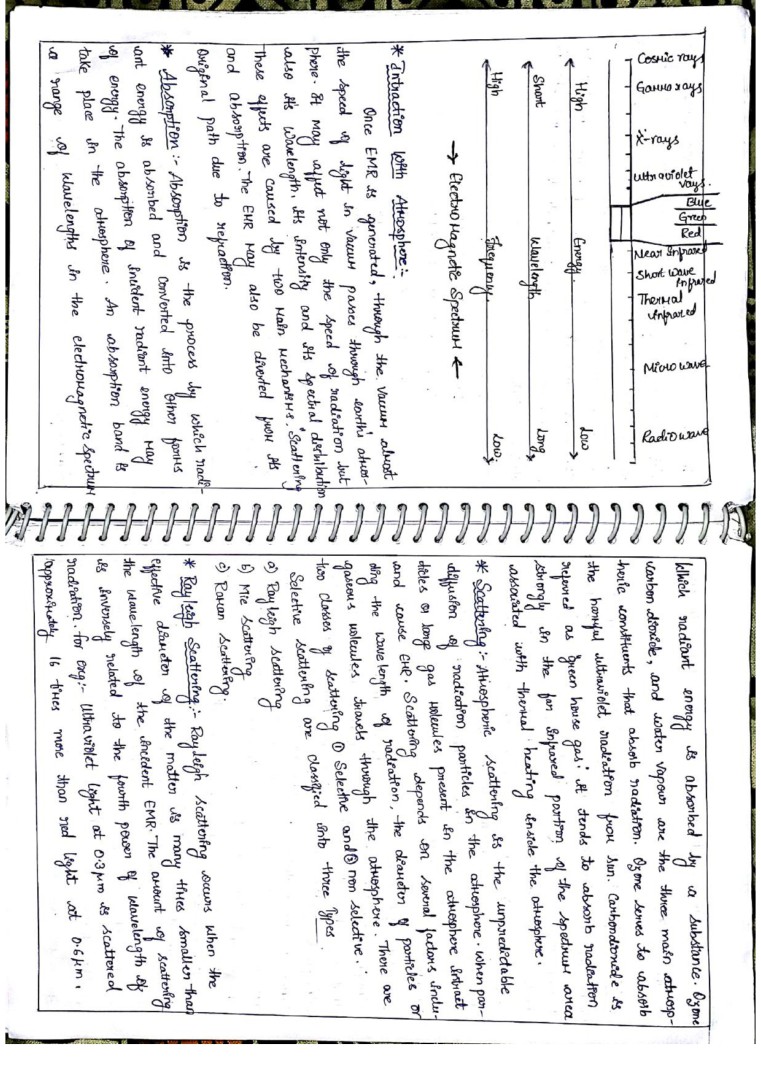 Cosmic rays
Gamma rays
X-rays
Ultraviolet
rays.
Blue
Green
Red
Near Infrared
Short wave
Infrared
Thermal
infrared
Microwave
Radiowave
High Energy Low
Short Wavelength Long
High Frequency Low.
→ Electro Magnetic Spectrum ←
* Intraction With Atmosphere:-
Once EMR is generated, through the vaccum almost
the speed of light in vaccum passes through earth's atmos-
phere. It may affect not only the speed of radiation but
also its Wavelength, its intensity and its spectral distribution
These effects are caused by two main mechanisms. Scattering
and absorption. The EMR may also be diverted from its
original path due to refraction.
* Absorption:- Absorption is the process by which radi-
ant energy is absorbed and converted into other forms
of energy. The absorption of incident radiant energy may
take place in the atmosphere. An absorption band is
a range of wavelengths in the electromagnetic spectrum
Which radiant energy is absorbed by a substance. Ozone
carbon dioxide, and water vapour are the three main atmosp-
heric constituents that absorb radiation. Ozone serves to absorb
the harmful ultraviolet radiation from sun. Carbondioxide is
referred as "green house gas". it tends to absorb radiation
strongly in the far infrared portion of the spectrum area
associated with thermal heating inside the atmosphere.
* Scattering:- Atmospheric scattering is the unpredictable
diffusion of radiation particles in the atmosphere. when par-
ticles or large gas molecules present in the atmosphere intract
and cause EMR. Scattering depends on several factors inclu-
ding the wavelength of radiation, the diameter of particles or
gaseous molecules travels through the atmosphere. There are
two classes of scattering ① Selective and ② non selective.
Selective scattering are classified into three Types
a) Rayleigh scattering
b) Mie scattering
c) Raman scattering.
* Rayleigh Scattering:- Rayleigh scattering occurs when the
effective diameter of the matter is many times smaller than
the wavelength of the incident EMR. The amount of scattering
is inversely related to the fourth power of wavelength of
radiation. for eng:- Ultraviolet light at 0.3 μm is scattered
approximately 16 times more than red light at 0.6 μm.